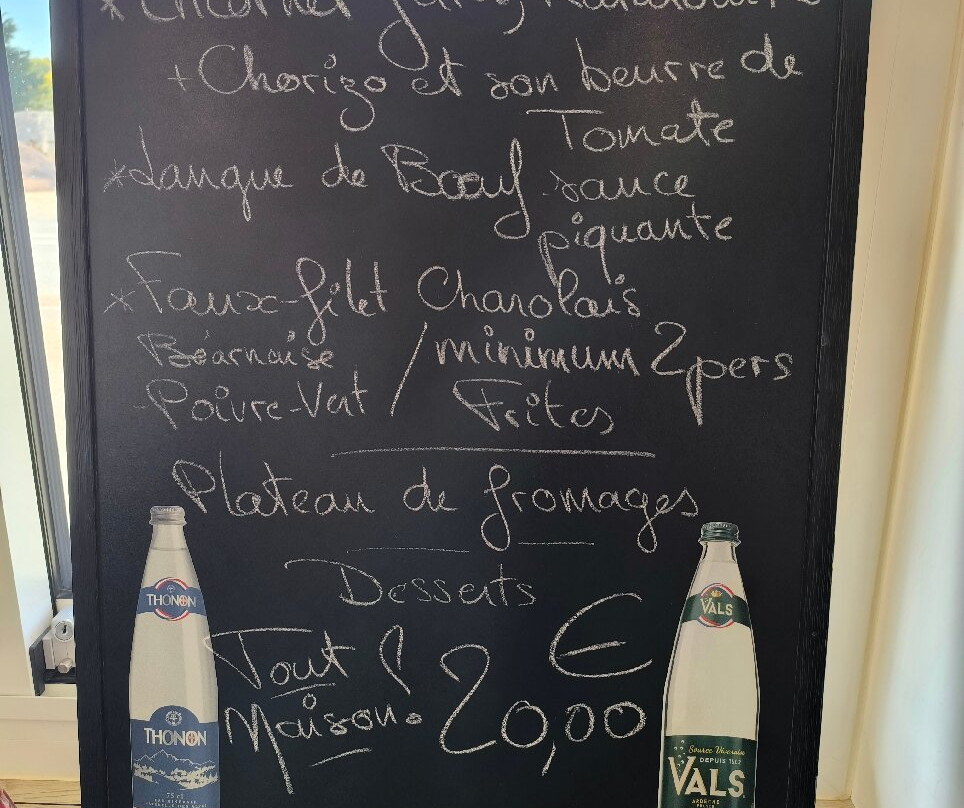 + Chorizo et son beurre de
Tomate
* Langue de Boeuf sauce
piquante
* Faux-filet Charolais
Béarnaise / minimum 2 pers
Poivre-Vert Frites
Plateau de fromages
Desserts
Tout
Maison! 20,00 €
THONON
THONON
75 cl
VALS
Source Vivaraise
DEPUIS 1602
VALS
ARDÈCHE